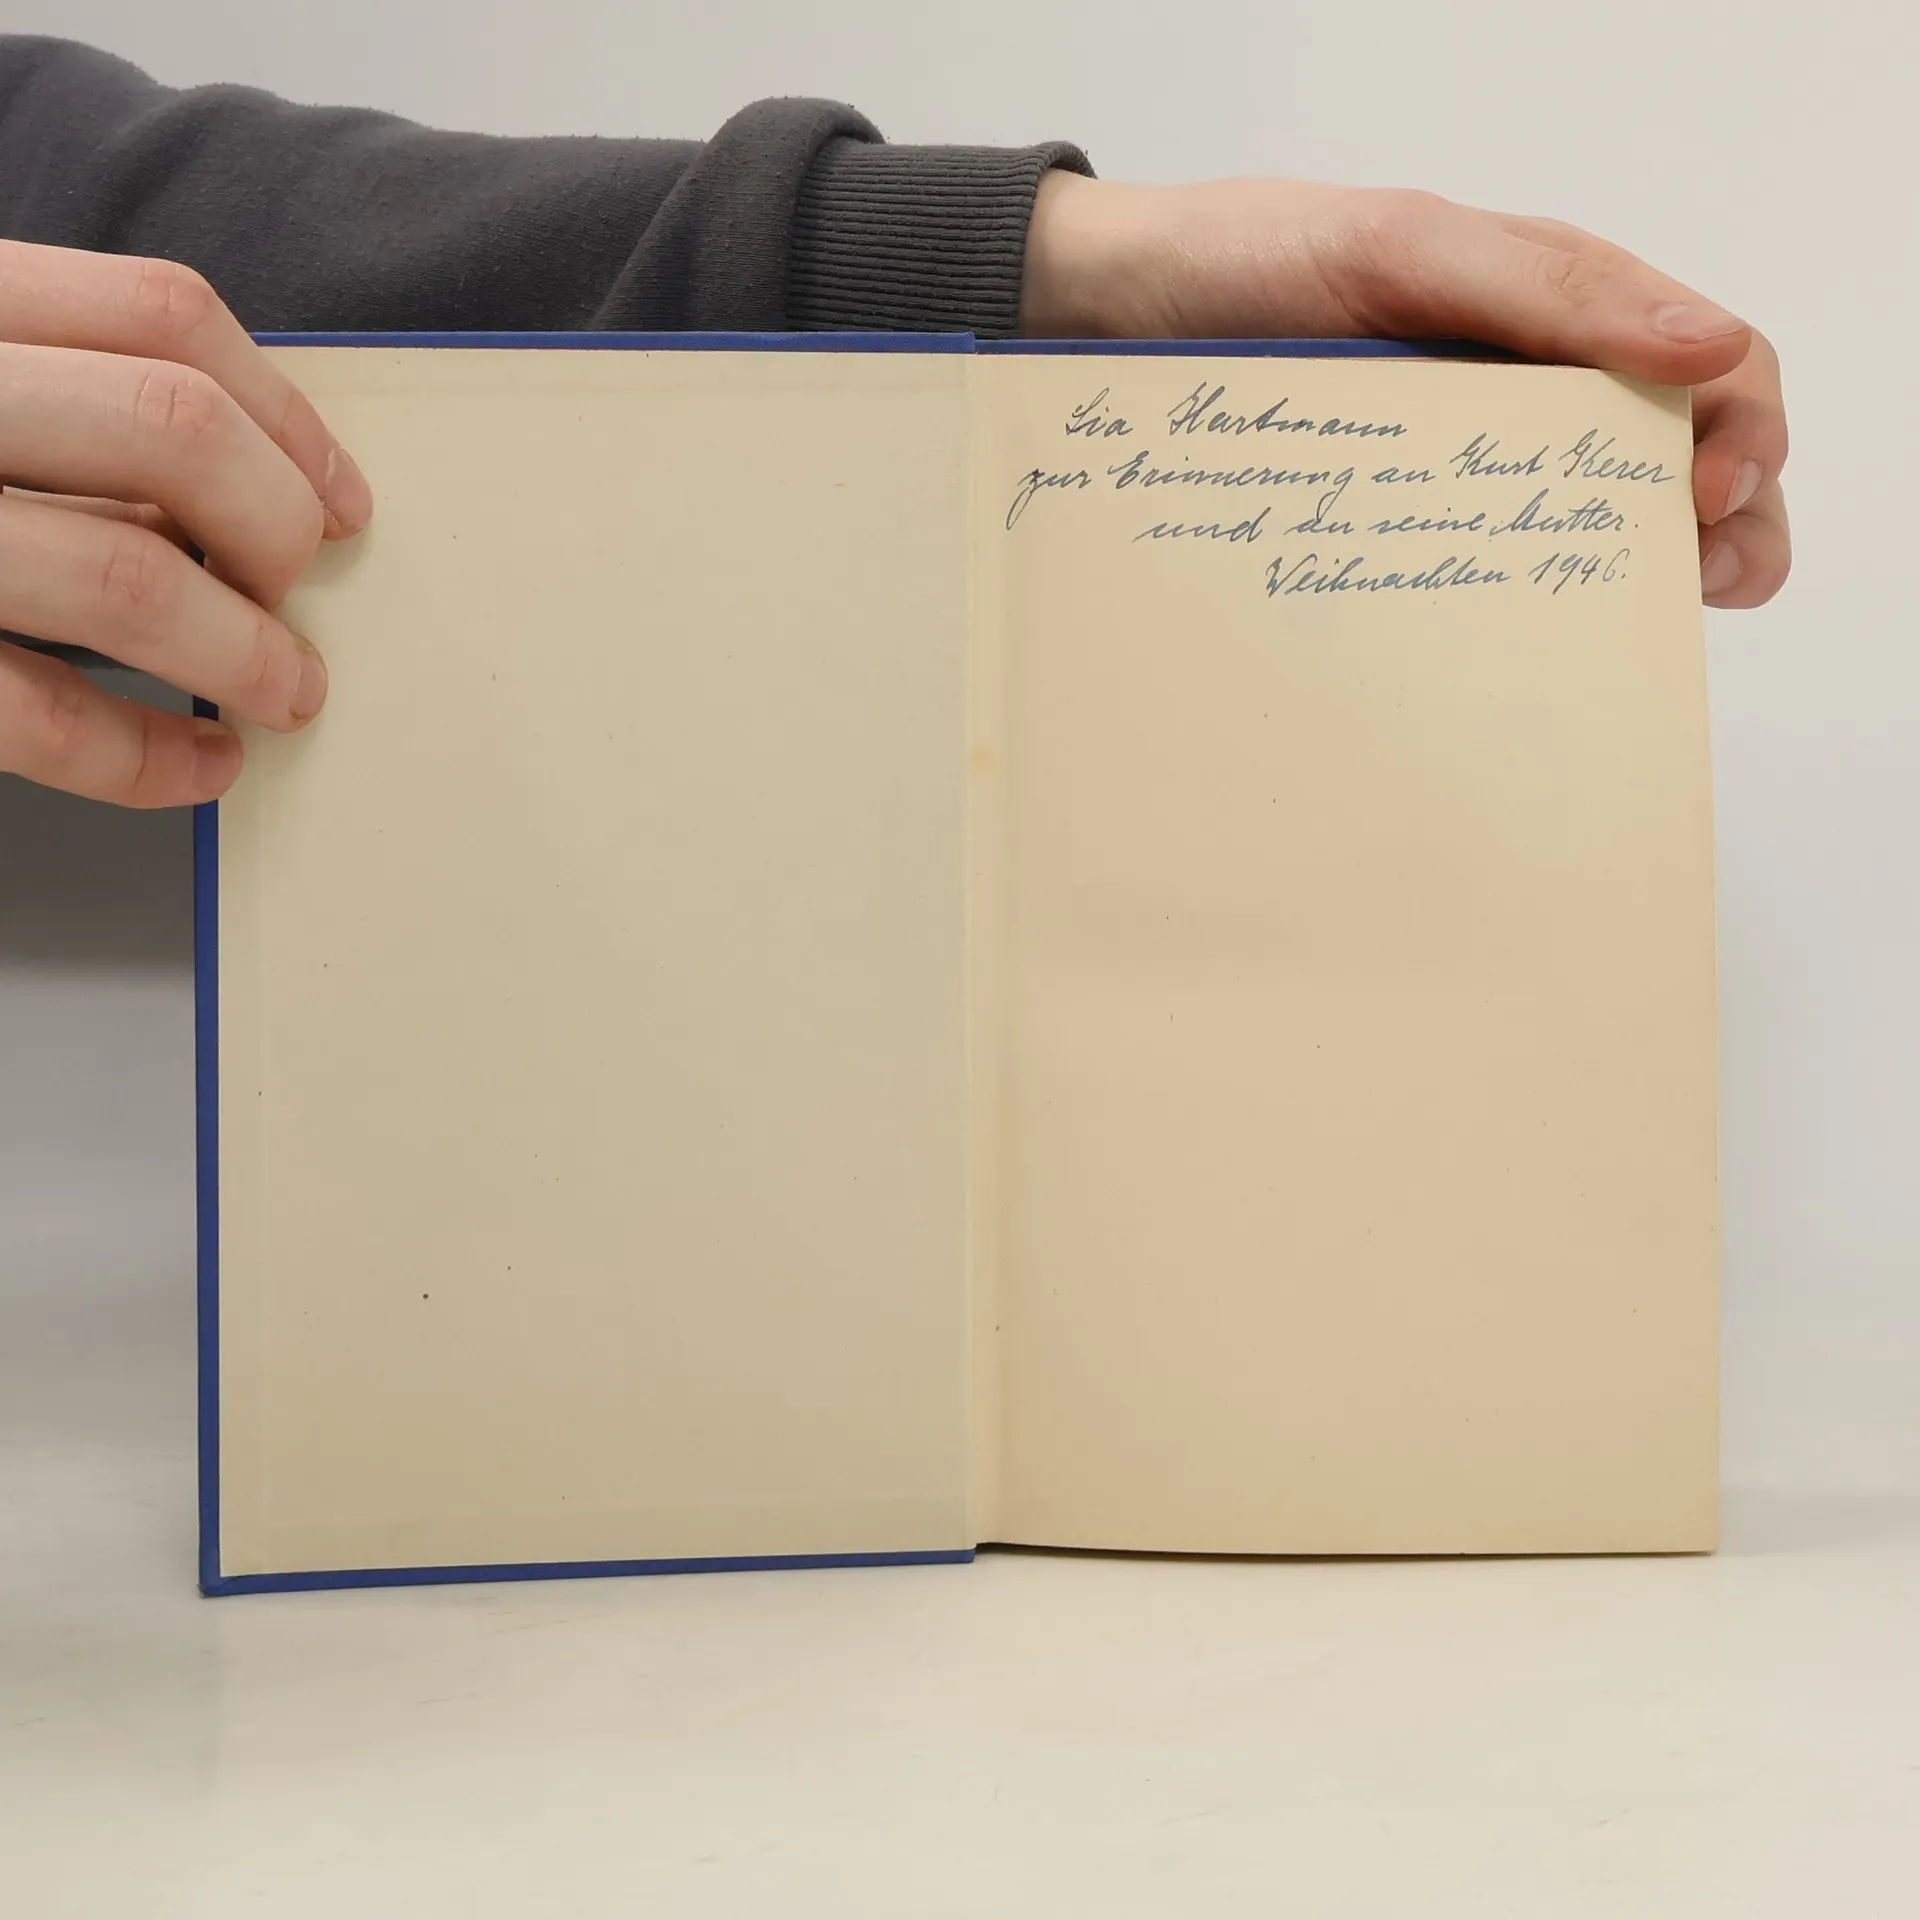 Lia Hartmann
zur Erinnerung an Kurt Kerer
und an seine Mutter.
Weihnachten 1946.